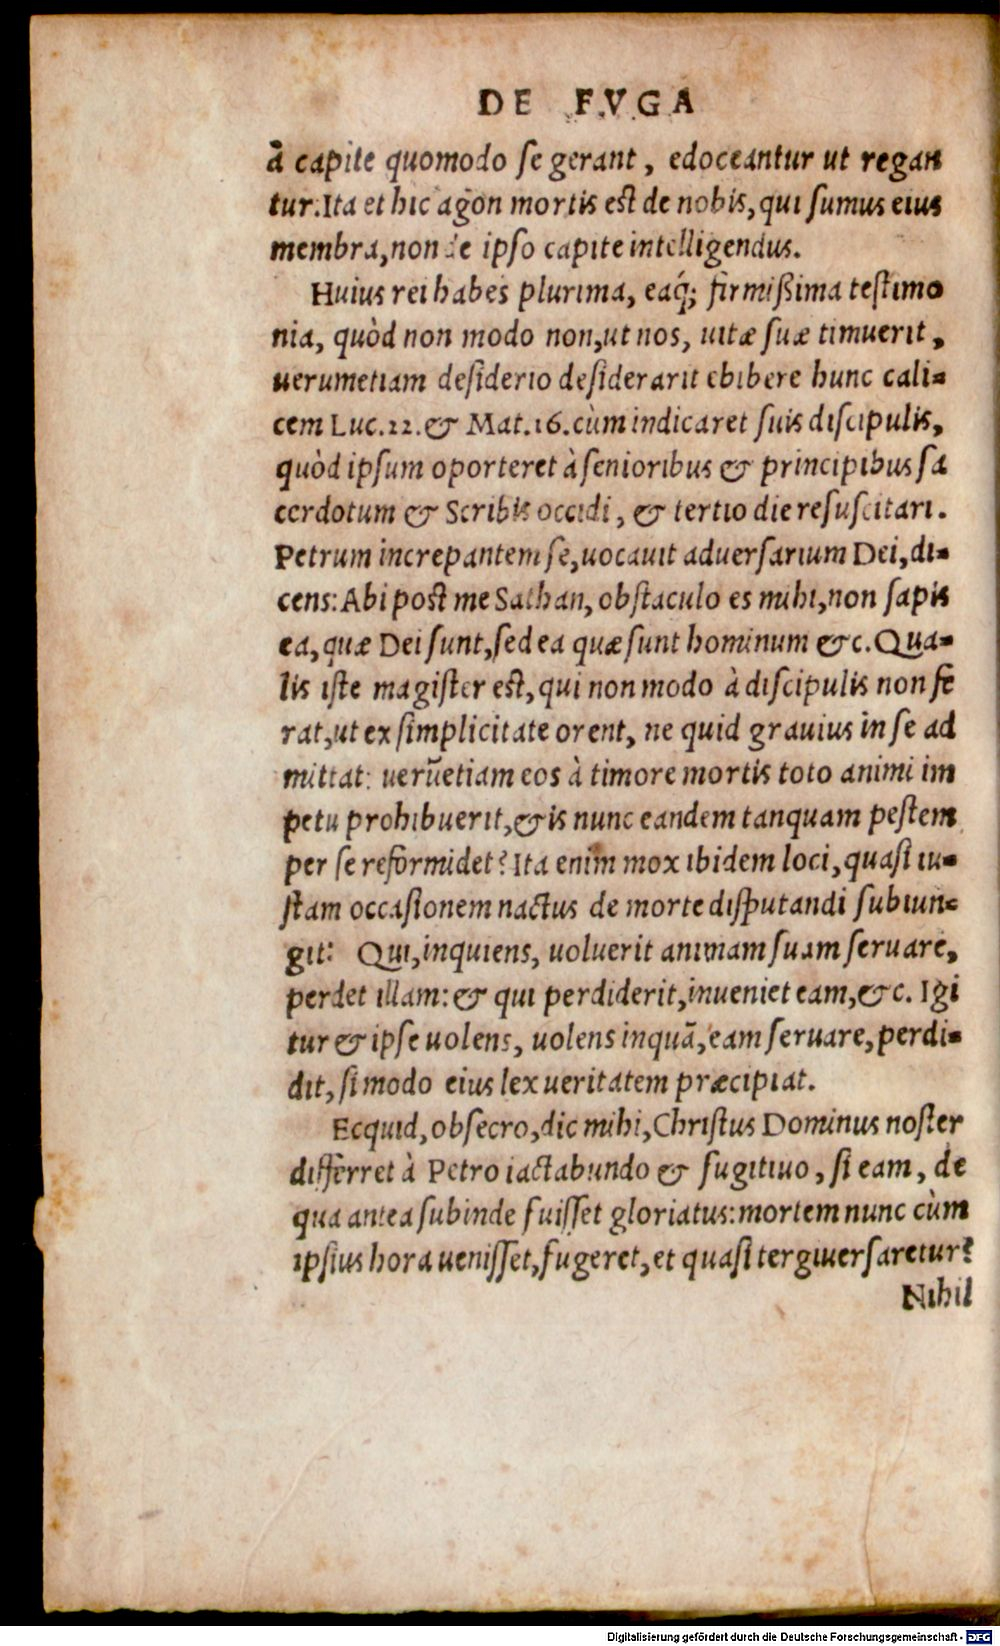 DE FVGA
à capite quomodo se gerant, edoceantur ut regan
tur. Ita et hic agon mortis est de nobis, qui sumus eius
membra, non de ipso capite intelligendus.
Huius rei habes plurima, eaq́; firmißima testimo
nia, quòd non modo non, ut nos, uitæ suæ timuerit,
uerumetiam desiderio desiderarit ebibere hunc cali-
cem Luc. 22. & Mat. 16. cùm indicaret suis discipulis,
quòd ipsum oporteret à senioribus & principibus sa
cerdotum & Scribis occidi, & tertio die resuscitari.
Petrum increpantem se, uocauit aduersarium Dei, di-
cens: Abi post me Sathan, obstaculo es mihi, non sapis
ea, quæ Dei sunt, sed ea quæ sunt hominum &c. Qua-
lis iste magister est, qui non modo à discipulis non fe
rat, ut ex simplicitate orent, ne quid grauius in se ad
mittat: uerũetiam eos à timore mortis toto animi im
petu prohibuerit, & is nunc eandem tanquam pestem
per se reformidet? Ita enim mox ibidem loci, quasi iu-
stam occasionem nactus de morte disputandi subiun-
git: Qui, inquiens, uoluerit animam suam seruare,
perdet illam: & qui perdiderit, inueniet eam, &c. Igi
tur & ipse uolens, uolens inquã, eam seruare, perdi-
dit, si modo eius lex ueritatem præcipiat.
Ecquid, obsecro, dic mihi, Christus Dominus noster
differret à Petro iactabundo & fugitiuo, si eam, de
qua antea subinde fuisset gloriatus: mortem nunc cùm
ipsius hora uenisset, fugeret, et quasi tergiuersaretur?
Nihil
Digitalisierung gefördert durch die Deutsche Forschungsgemeinschaft - DFG